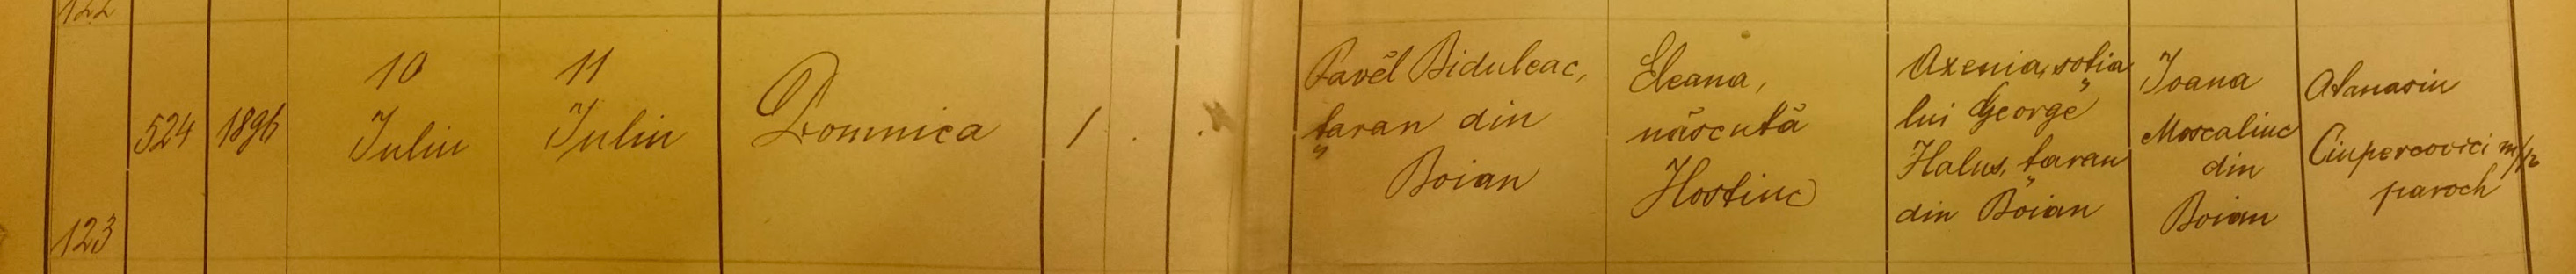 122
123
524
1896
10
Iuliu
11
Iuliu
Domnica
1
Pavĕl Biduleac,
țaran din
Boian
Eleana,
născută
Hostiuc
Axenia, soția
lui George
Halus, țaran
din Boian
Ioana
Moscaliuc
din
Boian
Atanasiu
Ciupercovici m/p
paroch